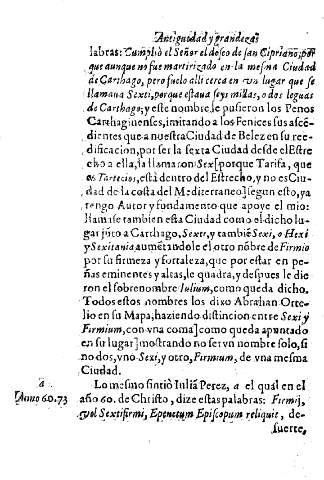 Antiguedad y grandezas
labras: Cumpliò el Señor el deseo de san Cipriano; por
que aunque no fue martirizado en la mesma Ciudad
de Carthago, pero fuelo alli cerca en vn lugar que se
llamaua Sexti, porque estaua seys millas, o dos leguas
de Carthago; y este nombre le pusieron los Penos
Carthaginenses, imitando a los Fenices sus ascē-
dientes que a nuestra Ciudad de Belez en su ree-
dificacion, por ser la sexta Ciudad desde el Estre
cho a ella, la llamaron Sex[porque Tarifa, que
es Tartecios, està dentro del Estrecho, y no es Ciu-
dad de la costa del Mediterraneo] segun esto, ya
tengo Autor y fundamento que apoye el mio:
llamase tambien esta Ciudad como el dicho lu-
gar jūto a Carthago, Sexti, y tambiē Sexi, o Hexi
y Sexitania, aumētandole el otro nōbre de Firmio
por su firmeza y fortaleza, que por estar en pe-
ñas eminentes y altas, le quadra, y despues le die
ron el sobrenombre Iulium, como queda dicho.
Todos estos nombres los dixo Abrahan Orte-
lio en su Mapa, haziendo distincion entre Sexi y
Firmium, con vna coma] como queda apuntado
en su lugar] mostrando no ser vn nombre solo, si
no dos, vno Sexi, y otro, Firmium, de vna mesma
Ciudad.
a
Lo mesmo sintiò Iuliā Perez, a el qual en el
Anno 60.73
año 60. de Christo, dize estas palabras: Firmij,
vel Sextifirmi, Epenetum Episcopum reliquit, de-
suerte,